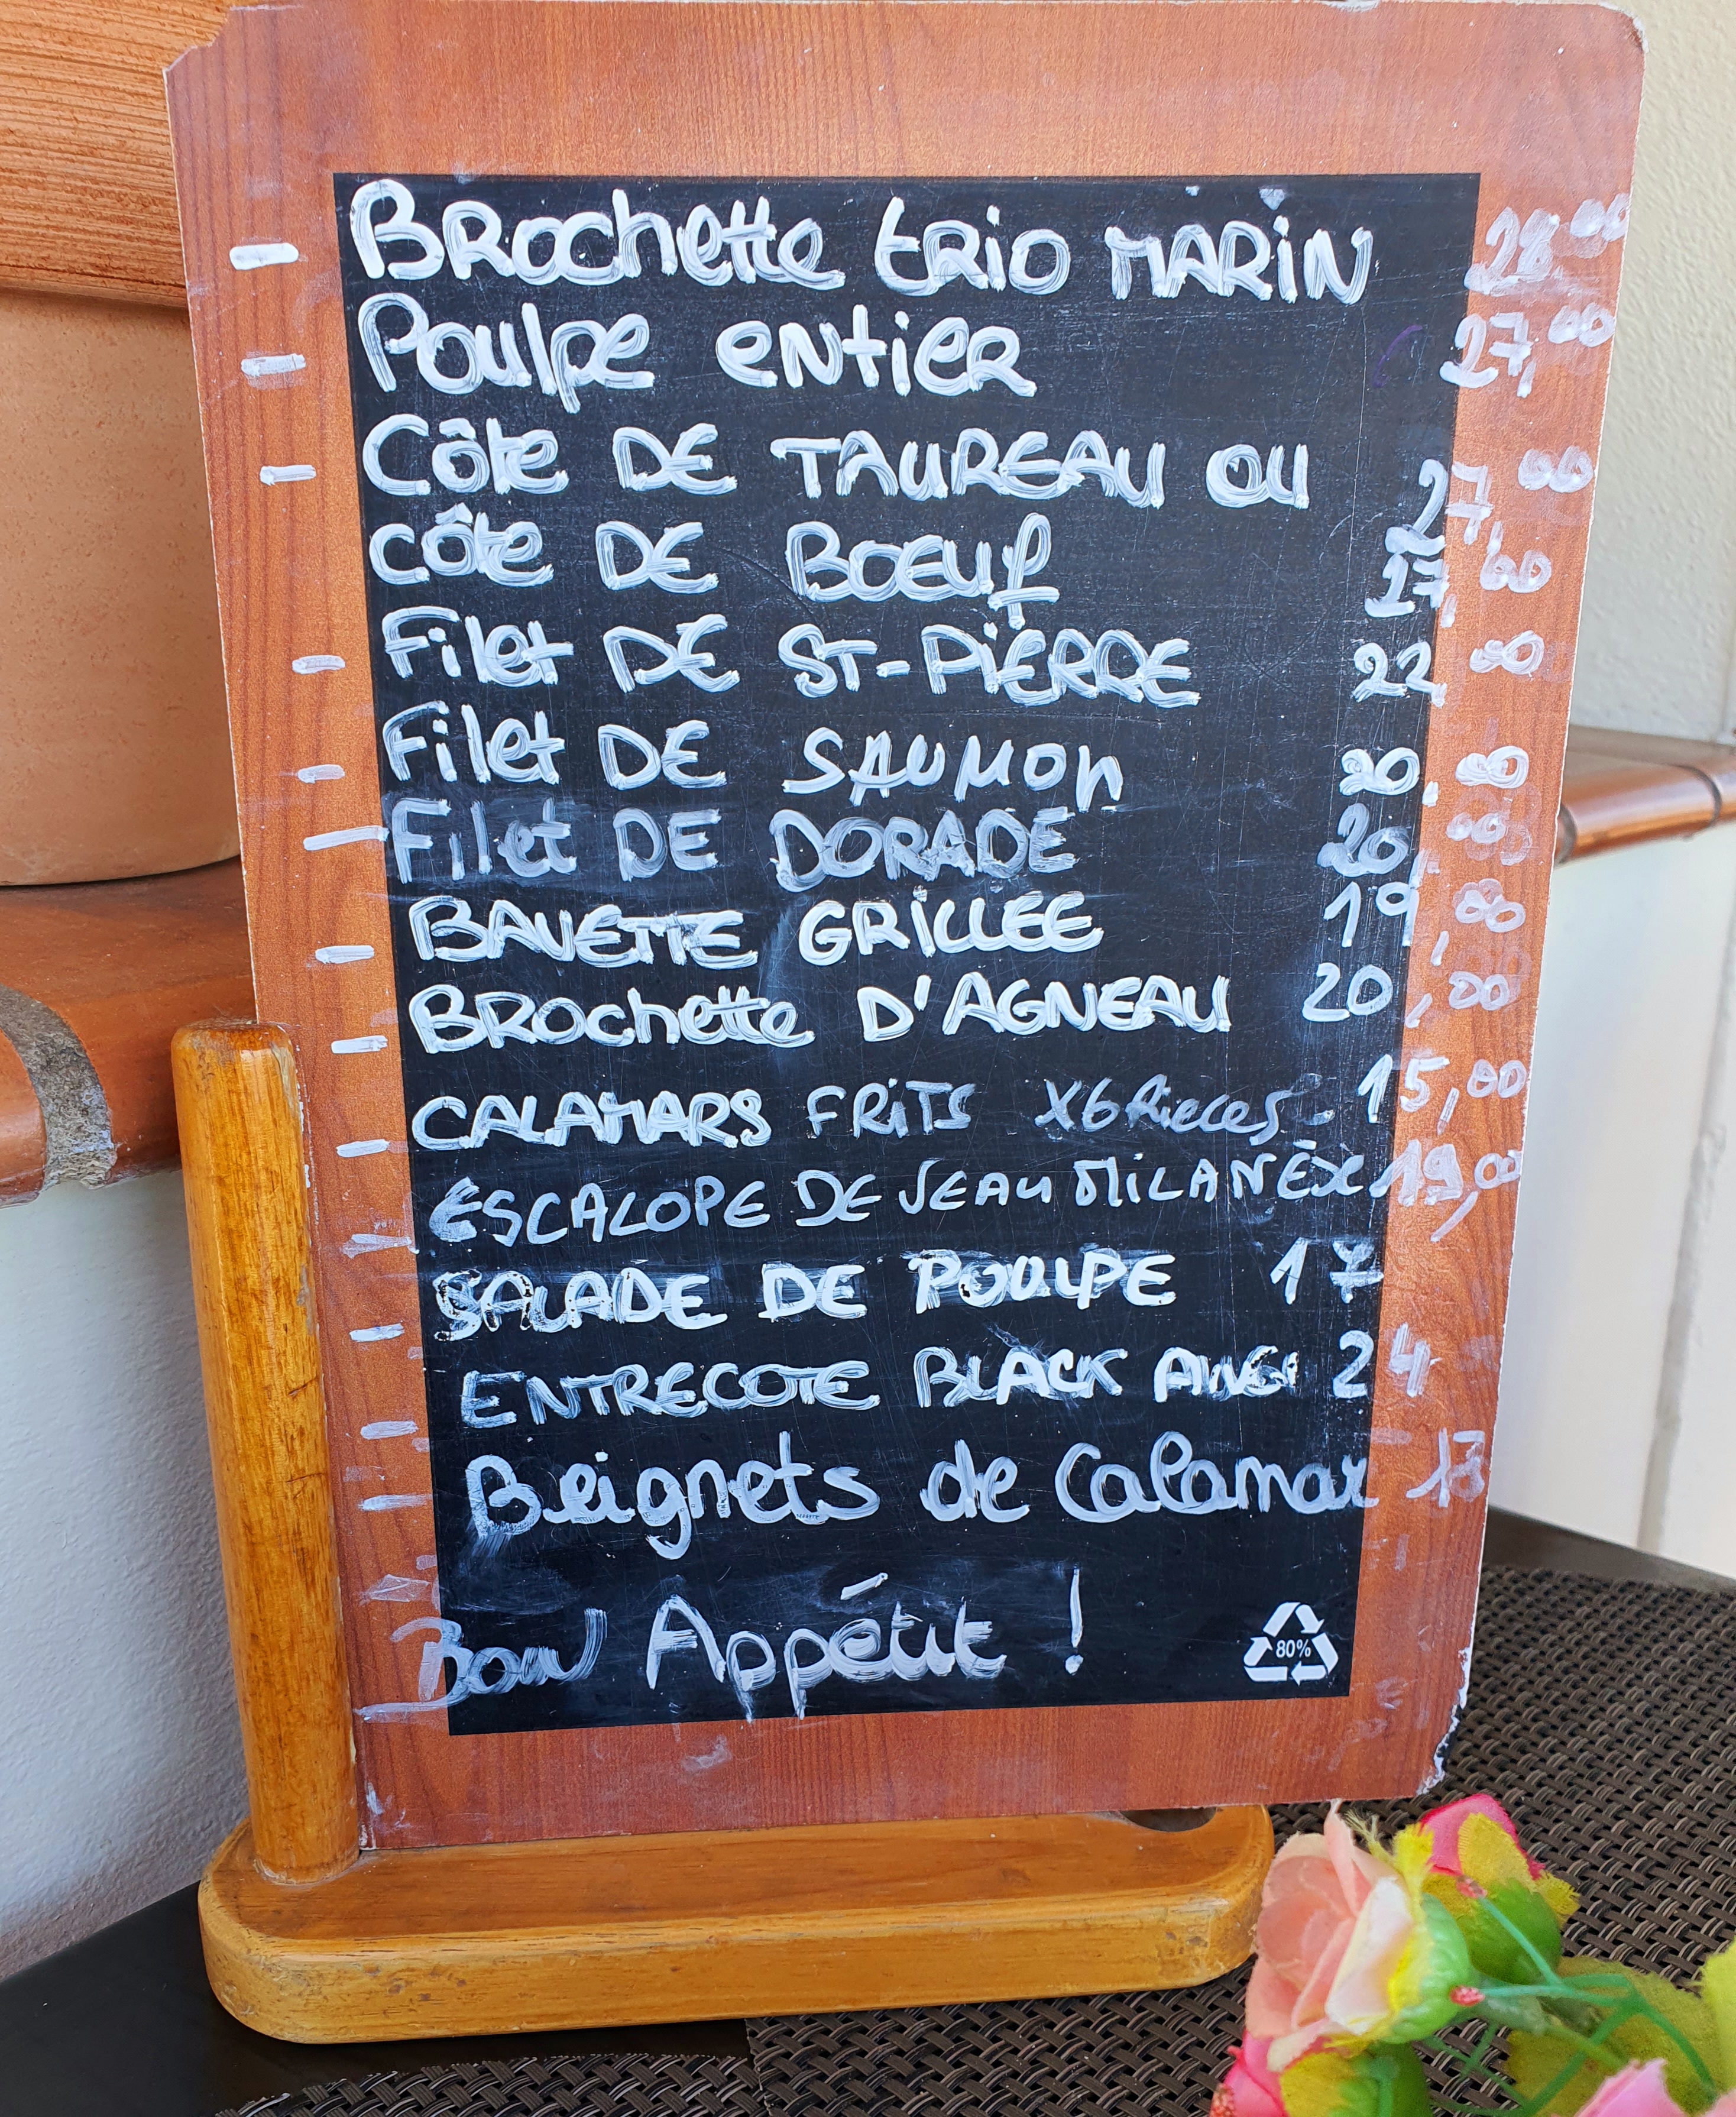 - Brochette trio MARIN 28,00
- Poulpe entier 27,00
- Côte DE TAUREAU OU 27,00
Côte DE BOEUF 27,00
- Filet DE ST-PIERRE 22,00
- Filet DE SAUMON 20,00
- Filet DE DORADE 20,00
- BAVETTE GRILLEE 19,00
- BROchette D'AGNEAU 20,00
- CALAMARS FRITS X6 Pieces 15,00
- ESCALOPE DE VEAU MILANÈZE 19,00
- SALADE DE POULPE 17
- ENTRECOTE BLACK ANG 24
- Beignets de Calamar 13
Bon Appétit !
80%